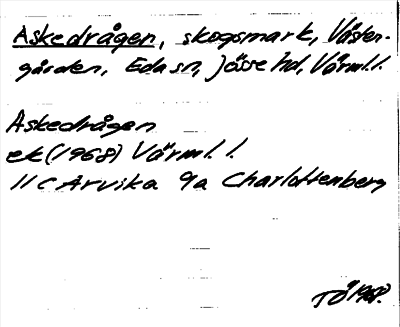 Askedrågen, skogsmark, Väster-
gården, Eda sn, Jösse hd, Värml. l.
Askedrågen
ek (1968) Värml. l.
11 C Arvika 9a Charlottenberg
TÖ 1968.